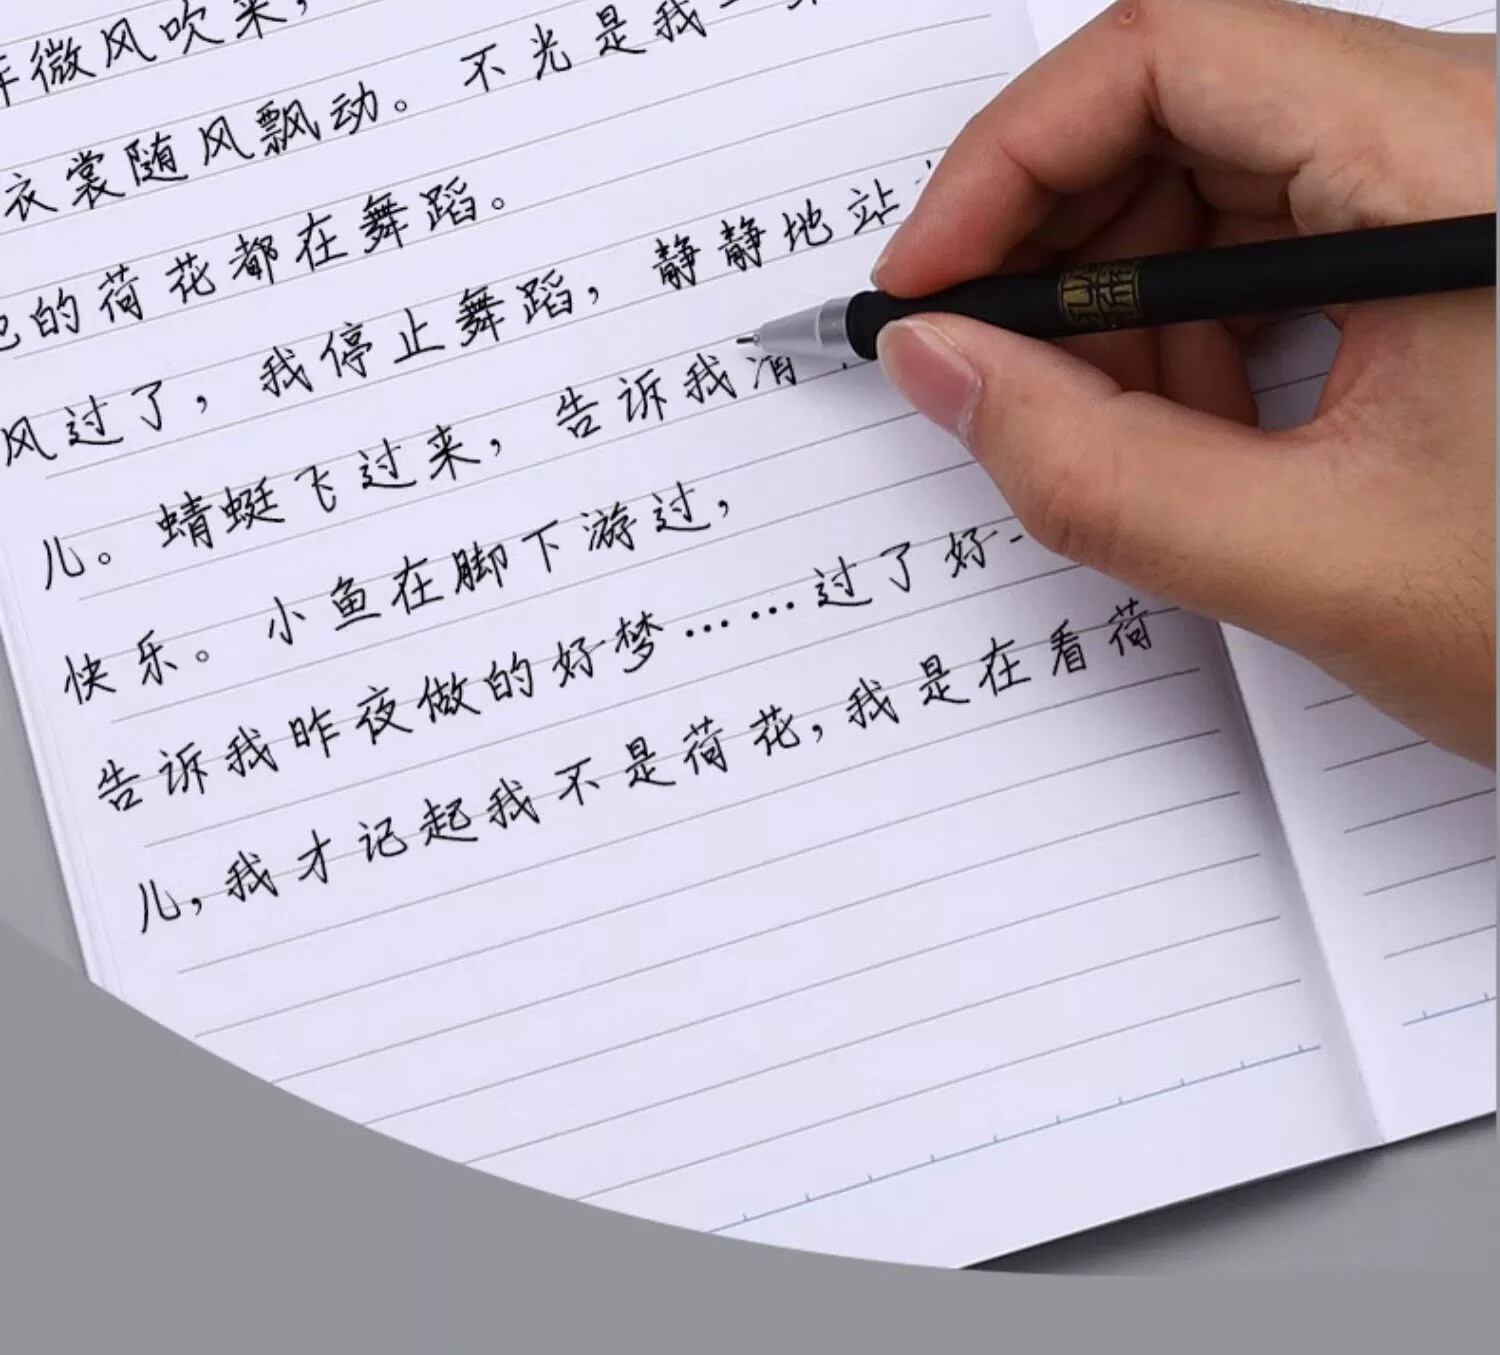 微风吹来，
衣裳随风飘动。不光是我一
的荷花都在舞蹈。
风过了，我停止舞蹈，静静地站
儿。蜻蜓飞过来，告诉我清
快乐。小鱼在脚下游过，
告诉我昨夜做的好梦……过了好一
儿,我才记起我不是荷花,我是在看荷